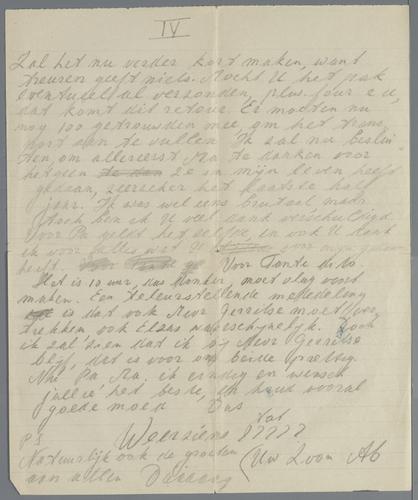 IV
Zal het nu verder kort maken, want
treuren geeft niets. Mocht U het pak
eventueel al verzonden, plus four e.d.
dat komt dit retour. Er moeten nu
nog 100 getrouwden mee, om het trans
port aan te vullen. Ik zal nu beslui
ten, om allereerst Ma te danken voor
hetgeen ze in mijn leven heeft
gedaan, zeerzeker het laatste half
jaar. Ik was wel eens brutaal, maar
toch ben ik U veel dank verschuldigd.
Voor Pa geldt hetzelfde, en ook U dank
ik voor alles wat U voor mij gedaan
heeft. Voor Tante dito
Het is 10 uur, dus donker, moet vlug voort
maken. Een teleurstellende mededeling
is dat ook Mevr Gerritse moet ver
trekken ook Elzas waarschijnlijk. Doch
ik zal zien dat ik bij Mevr Gerritse
blijf, dat is voor ons beide prettig.
Nu Pa, Ma, ik eindig en wensch
jullie het beste, en houd vooral
goede moed Dus
Weerziens Tot ?????
P.S
Natuurlijk ook de groeten (Uw Zoon Ab
aan allen